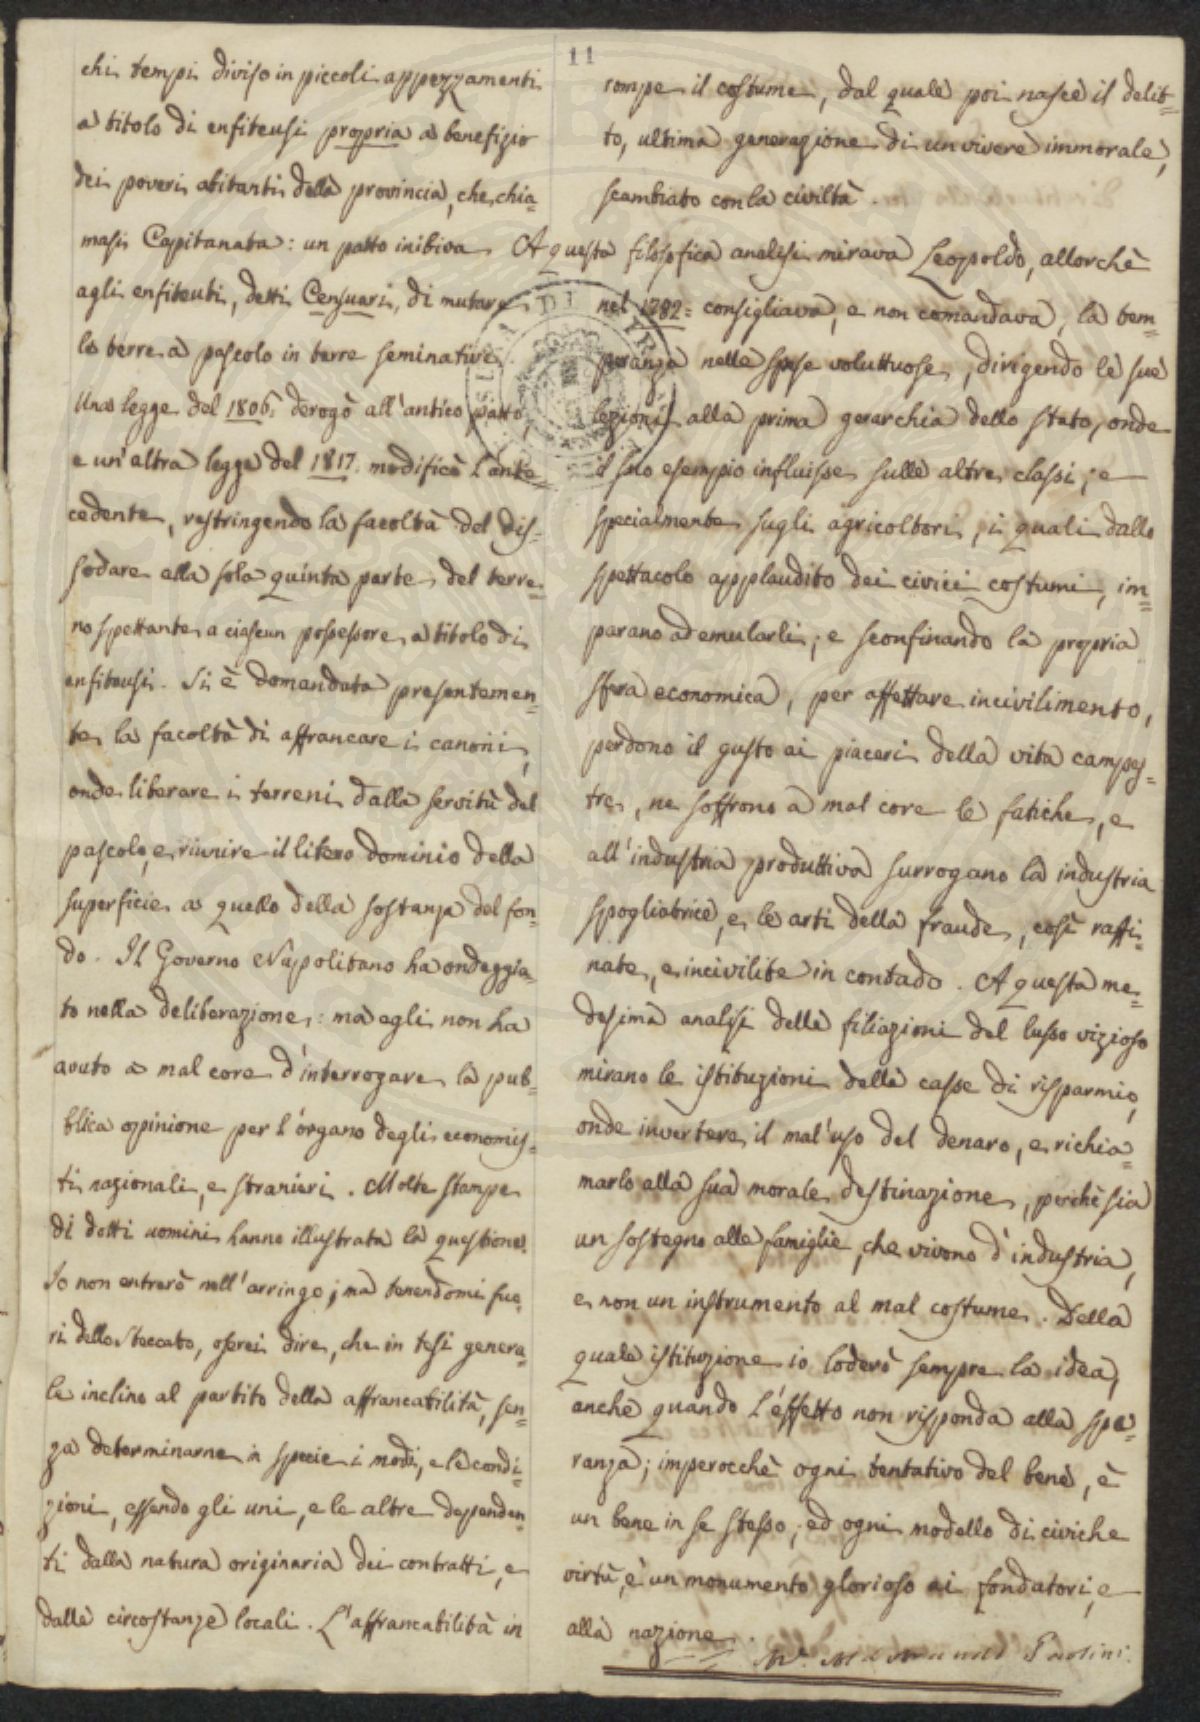 11
chi tempi diviso in piccoli appezzamenti
a titolo di enfiteusi propria a benefizio
dei poveri abitanti della provincia, che chia=
masi Capitanata: un patto inibiva
agli enfiteuti, detti Censuari, di mutare
le terre a pascolo in terre seminative.
Una legge del 1806. derogò all'antico patto,
e un'altra legge del 1817. modificò l'ante=
cedente, restringendo la facoltà del dis=
sodare alla sola quinta parte del terre=
no spettante a ciascun possessore a titolo di
enfiteusi. Si è domandata presentemen=
te la facoltà di affrancare i canoni,
onde liberare i terreni dalla servitù del
pascolo, e riunire il libero dominio della
superficie a quello della sostanza del fon=
do. Il Governo Napolitano ha ondeggia=
to nella deliberazione: ma egli non ha
avuto a mal core d'interrogare la pub=
blica opinione per l'organo degli economis=
ti nazionali, e stranieri. Molte stampe
di dotti uomini hanno illustrata la questione.
Io non entrerò nell'arringo; ma tenendomi fuo=
ri dello steccato, oserei dire, che in tesi genera=
le inclino al partito della affrancabilità, sen=
za determinarne in specie i modi, e le condi=
zioni, essendo gli uni, e le altre dependen=
ti dalla natura originaria dei contratti, e
dalle circostanze locali. L'affrancabilità in
rompe il costume, dal quale poi nasce il delit=
to, ultima generazione di un vivere immorale,
scambiato con la civiltà.
A questa filosofica analisi mirava Leopoldo, allorchè
nel 1782= consigliava, e non comandava, la tem=
peranza nelle spese voluttuose, dirigendo le sue
lezioni alla prima gerarchia dello stato, onde
il suo esempio influisse sulle altre classi; e
specialmente sugli agricoltori, i quali dallo
spettacolo applaudito dei civici costumi, im=
parano ad emularli; e sconfinando la propria
sfera economica, per affettare incivilimento,
perdono il gusto ai piaceri della vita campes=
tre, ne soffrono a mal core le fatiche, e
all'industria produttiva surrogano la industria
spogliatrice, e le arti della fraude, così raffi=
nate, e incivilite in contado. A questa me=
desima analisi delle filiazioni del lusso vizioso
mirano le istituzioni delle casse di risparmio,
onde invertere il mal'uso del denaro, e richia=
marlo alla sua morale destinazione, perchè sia
un sostegno alle famiglie, che vivono d'industria,
e non un instrumento al mal costume. Della
quale istituzione io loderò sempre la idea,
anche quando l'effetto non risponda alla spe=
ranza; imperocchè ogni tentativo del bene, è
un bene in se stesso; ed ogni modello di civiche
virtù, è un monumento glorioso ai fondatori, e
alla nazione.
Paolini.